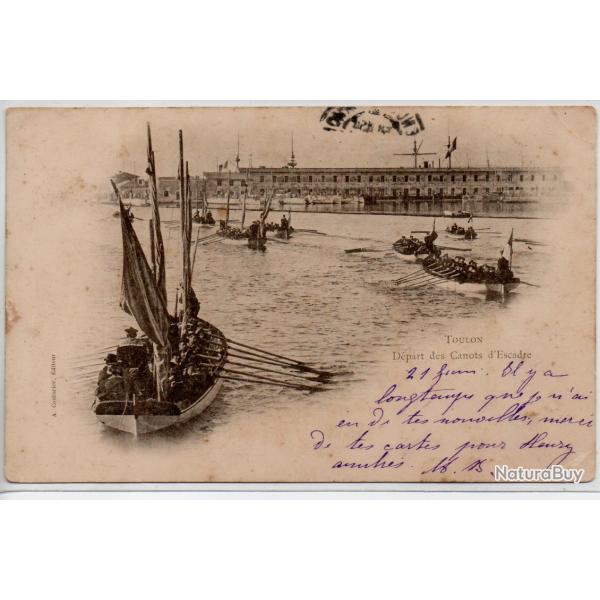 TOULON
Départ des Canots d'Escadre
21 Juin. Il y a
longtemps que je n'ai
eu de tes nouvelles, merci
de tes cartes pour Henry
amitiés. M. B.
A. Couturier, Éditeur
NaturaBuy